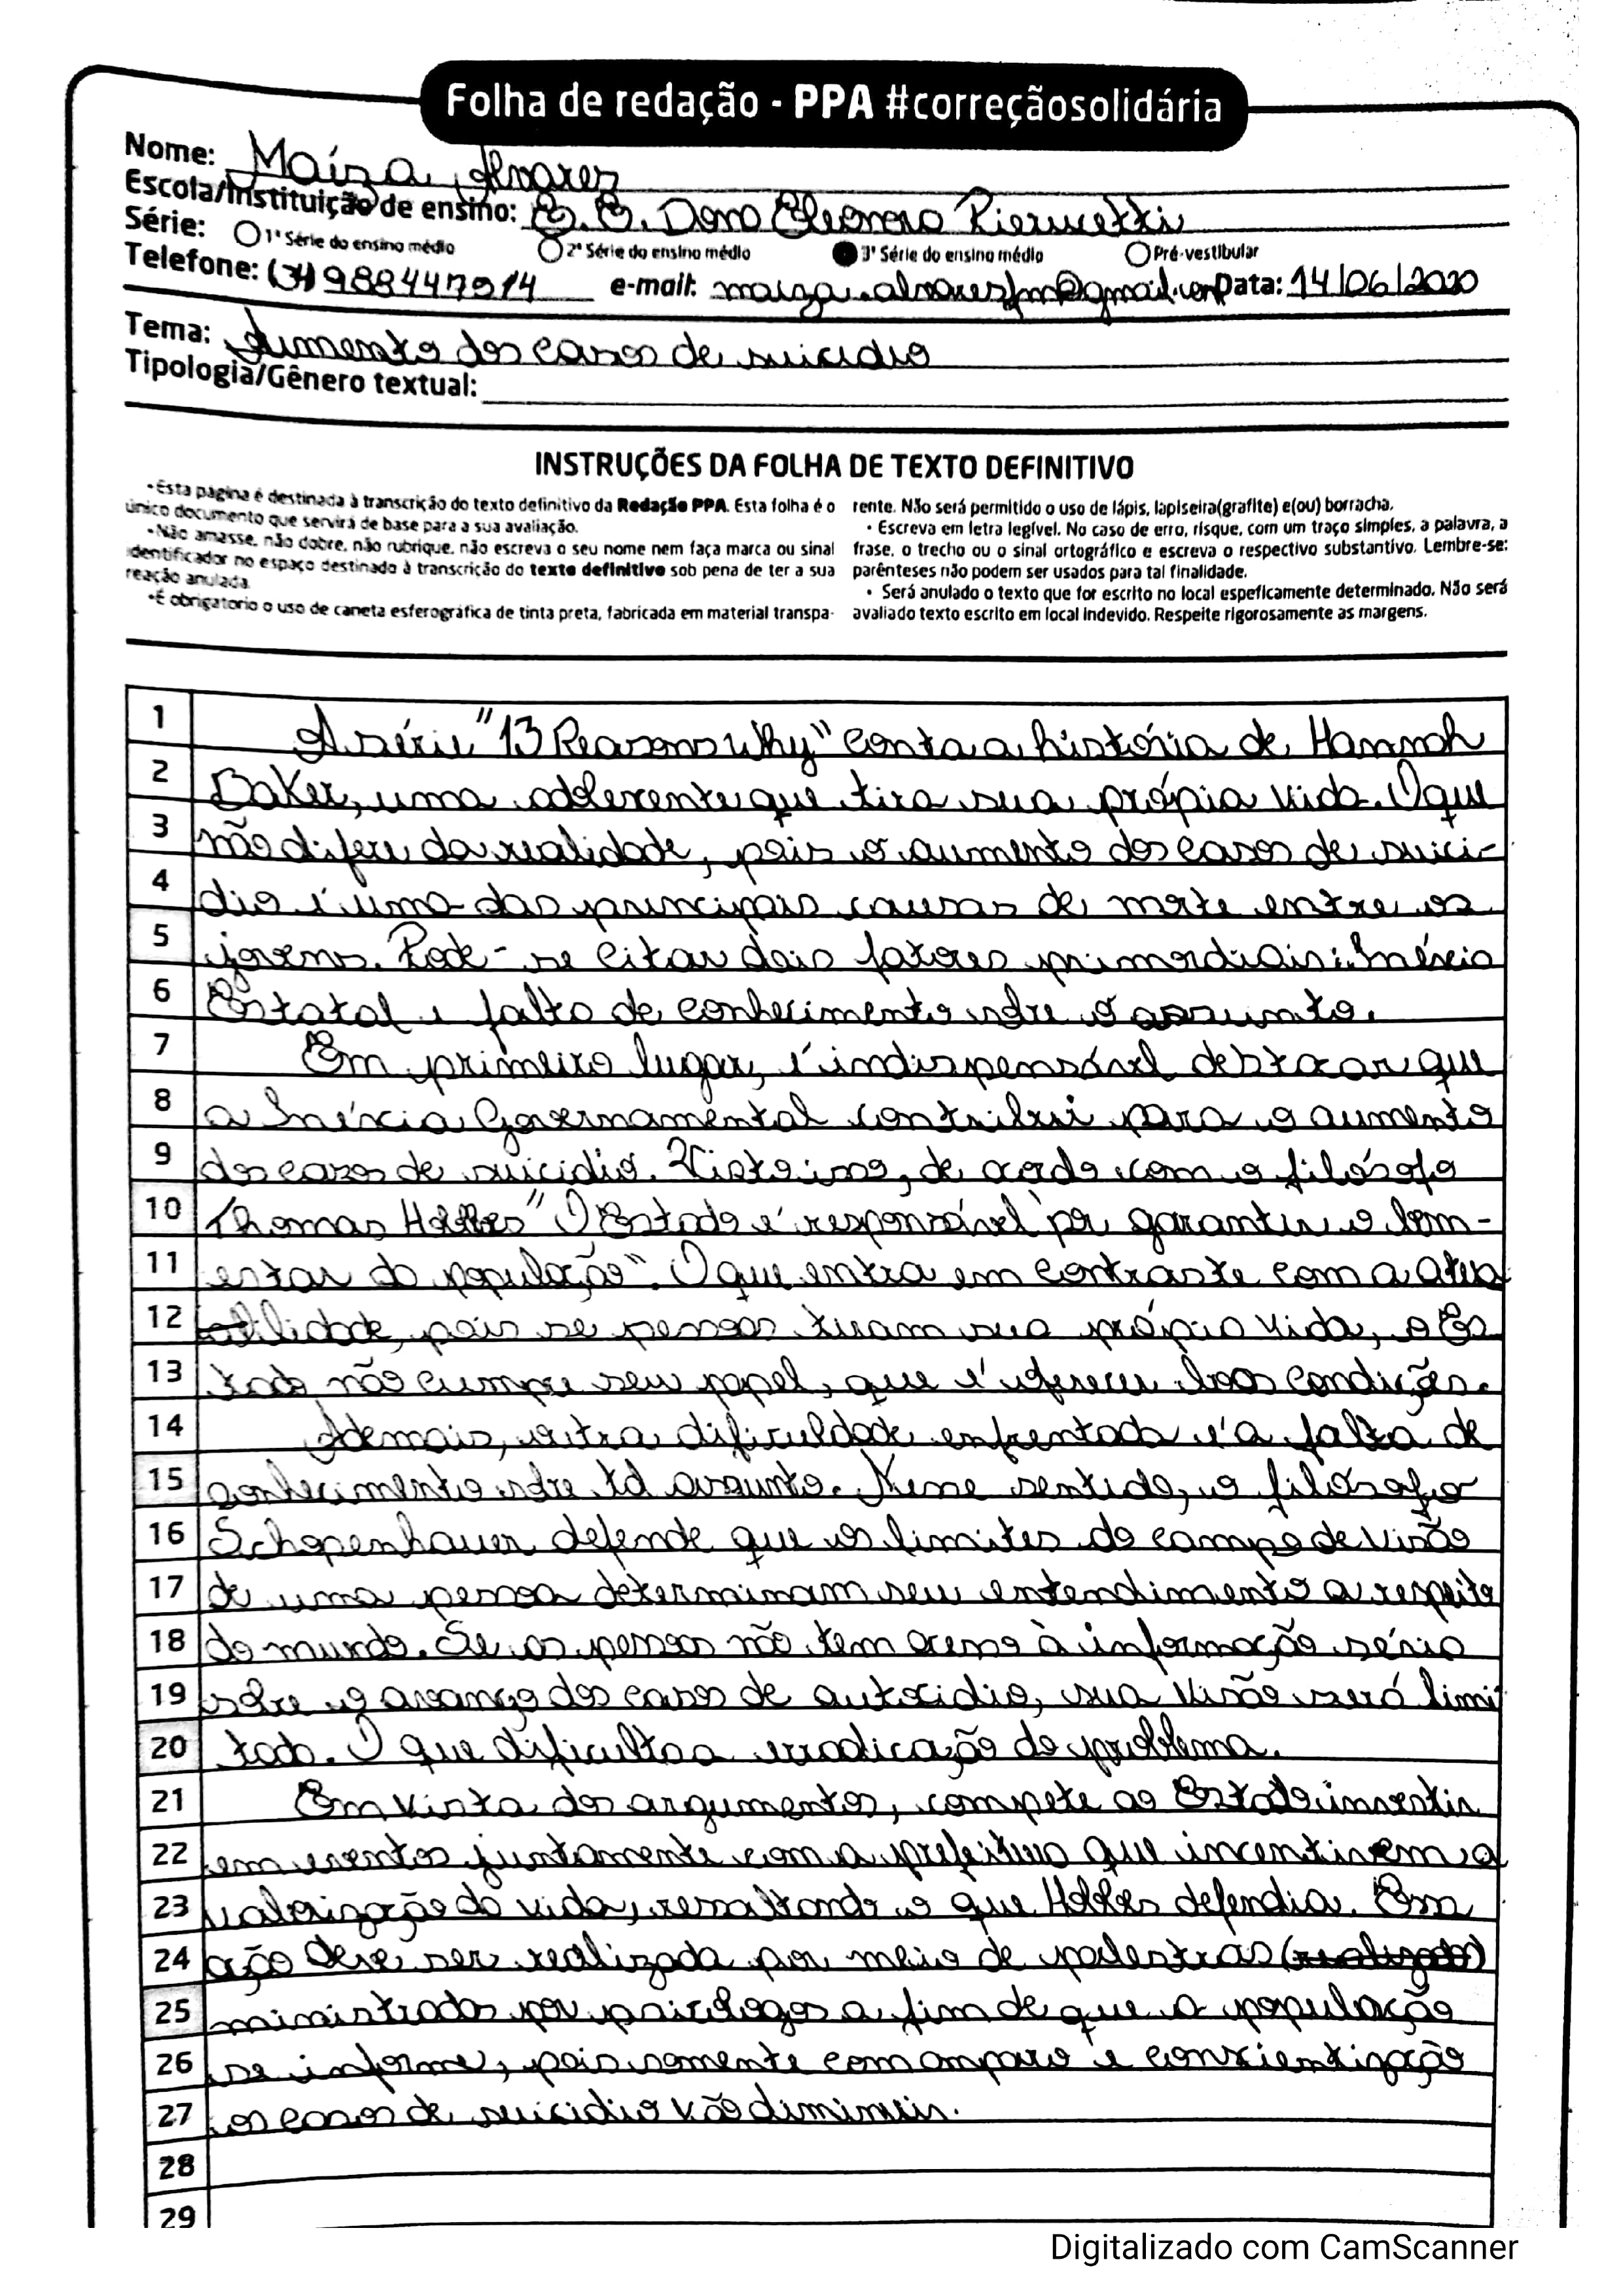 Folha de redação - PPA #correçãosolidária
Nome: Maíza Alvarez
Escola/Instituição de ensino: E. E. Dona Eleonora Pieruccetti
Série: 1ª Série do ensino médio 2ª Série do ensino médio 3ª Série do ensino médio Pré-vestibular
Telefone: (34) 988447914 e-mail: @gmail.com Data: 14/06/2020
Tema: Aumento dos casos de suicidio
Tipologia/Gênero textual:
INSTRUÇÕES DA FOLHA DE TEXTO DEFINITIVO
•Esta página é destinada à transcrição do texto definitivo da Redação PPA. Esta folha é o
único documento que servirá de base para a sua avaliação.
•Não amasse, não dobre, não rubrique, não escreva o seu nome nem faça marca ou sinal
identificador no espaço destinado à transcrição do texto definitivo sob pena de ter a sua
reação anulada.
•É obrigatorio o uso de caneta esferográfica de tinta preta, fabricada em material transpa-
rente. Não será permitido o uso de lápis, lapiseira(grafite) e(ou) borracha.
• Escreva em letra legível. No caso de erro, risque, com um traço simples, a palavra, a
frase, o trecho ou o sinal ortográfico e escreva o respectivo substantivo. Lembre-se:
parênteses não podem ser usados para tal finalidade.
• Será anulado o texto que for escrito no local espeficamente determinado. Não será
avaliado texto escrito em local indevido. Respeite rigorosamente as margens.
1 A série "13 Reasons Why" conta a história de Hannah
2 Baker, uma adolerente que tira sua própia vida. O que
3 não difere da realidade, pois o aumento dos casos de suici-
4 dio é uma das principais causas de morte entre os
5 jovens. Pode-se citar dois fatores primordiais: Inércia
6 Estatal e falta de conhecimento sobre o assunto.
7 Em primeiro lugar, é indispensável destacar que
8 a Inércia Governamental contribui para o aumento
9 dos casos de suicidio. Visto isso, de acordo com o filósofo
10 Thomas Hobbes "O Estado é responsável por garantir o bem-
11 estar da população". O que entra em contraste com a atua
12 lidade, pois se pessoas tiram sua própia vida, o Es
13 tado não cumpre seu papel, que é oferecer boas condições.
14 Ademais, outra dificuldade enfrentada é a falta de
15 conhecimento sobre tal assunto. Nesse sentido, o filósofo
16 Schopenhauer defende que os limites do campo de visão
17 de uma pessoa determinam seu entendimento a respeito
18 do mundo. Se as pessoas não tem acesso à informação séria
19 sobre o avanço dos casos de autocidio, sua visão será limi
20 tada. O que dificulta a erradicação do problema.
21 Em vista dos argumentos, compete ao Estado investir
22 em eventos juntamente com a prefeitura que incentivem a
23 valorização da vida, ressaltando o que Hobbes defendia. Essa
24 ação deve ser realizada por meio de palestras (realizada)
25 ministradas por psicólogos a fim de que a população
26 se informe, pois somente com amparo e conscientização
27 os casos de suicidio vão diminuir.
28
29
Digitalizado com CamScanner